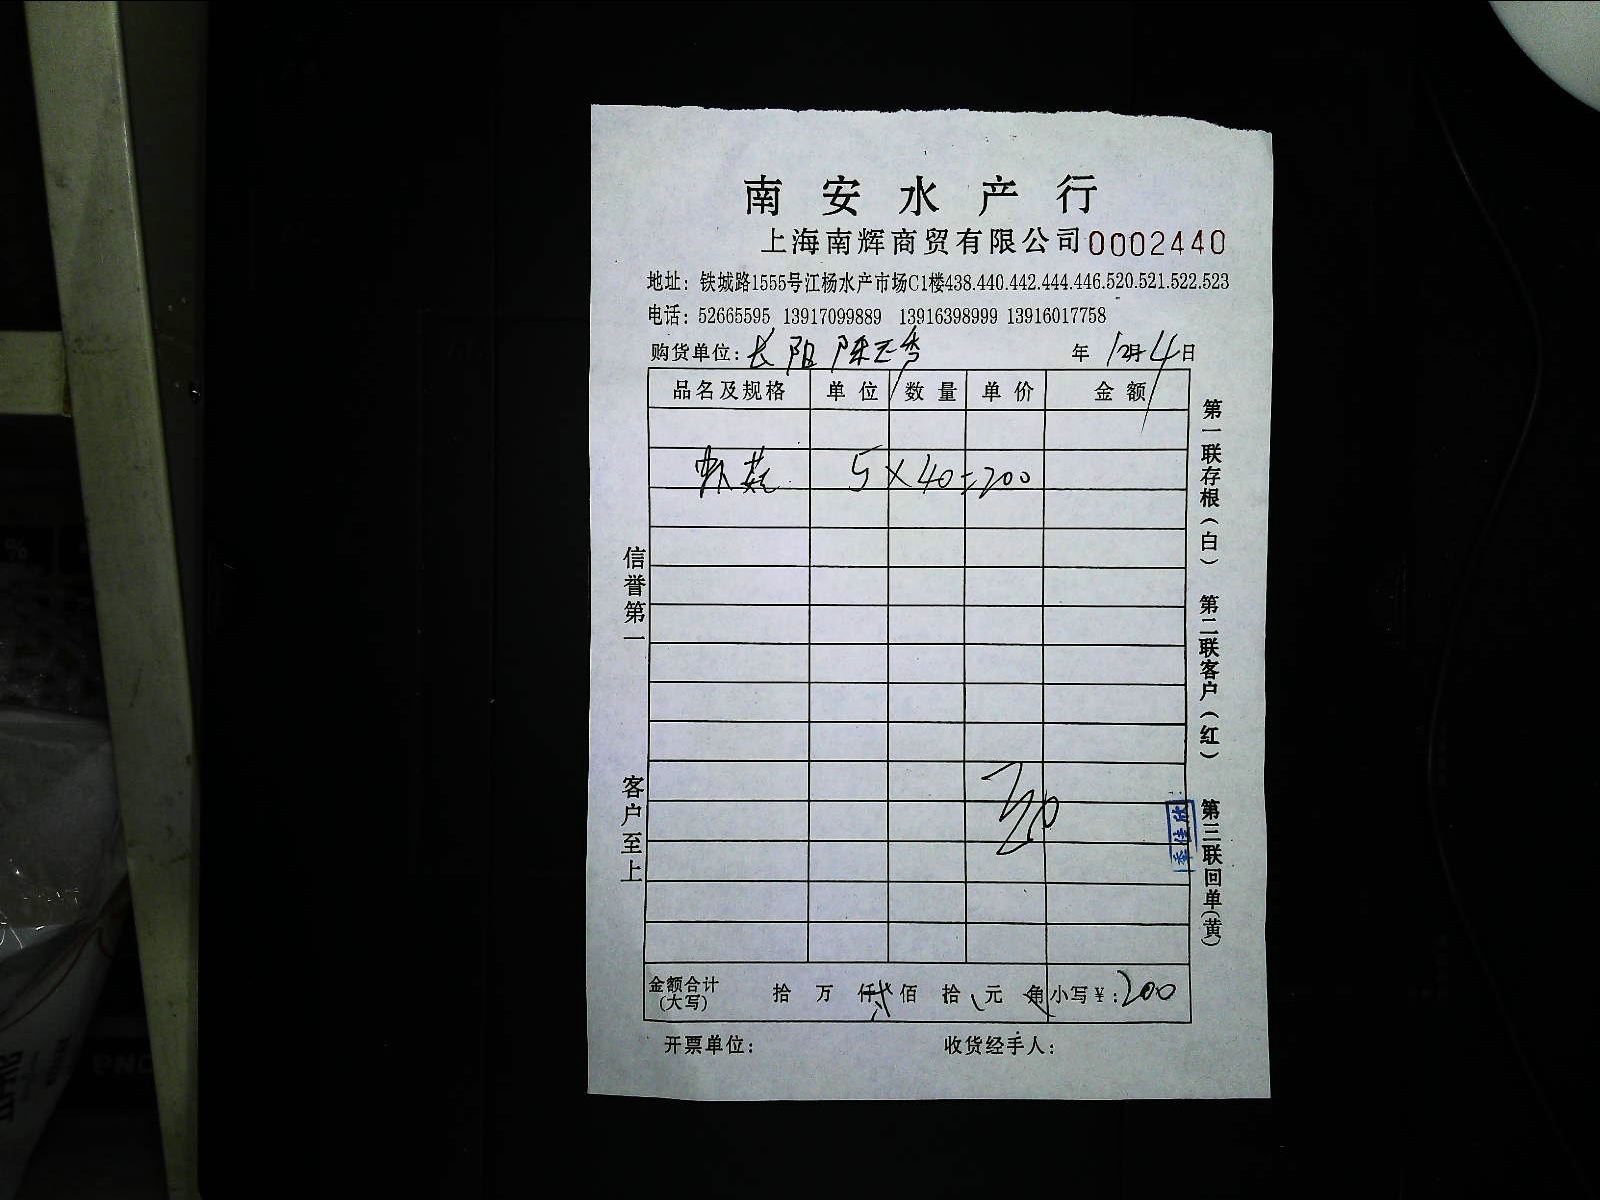 南安水产行
上海南辉商贸有限公司0002440
地址：铁城路1555号江杨水产市场C1楼438.440.442.444.446.520.521.522.523
电话：52665595 13917099889 13916398999 13916017758
购货单位：长阳 陈正秀 年12月4日
品名及规格 单位 数量 单价 金额
虾 5×40=200
金额合计(大写) 拾 万 仟 贰 佰 拾 元 角 小写¥：200
开票单位： 收货经手人：
信誉第一
客户至上
第一联存根（白）
第二联客户（红）
第三联回单（黄）